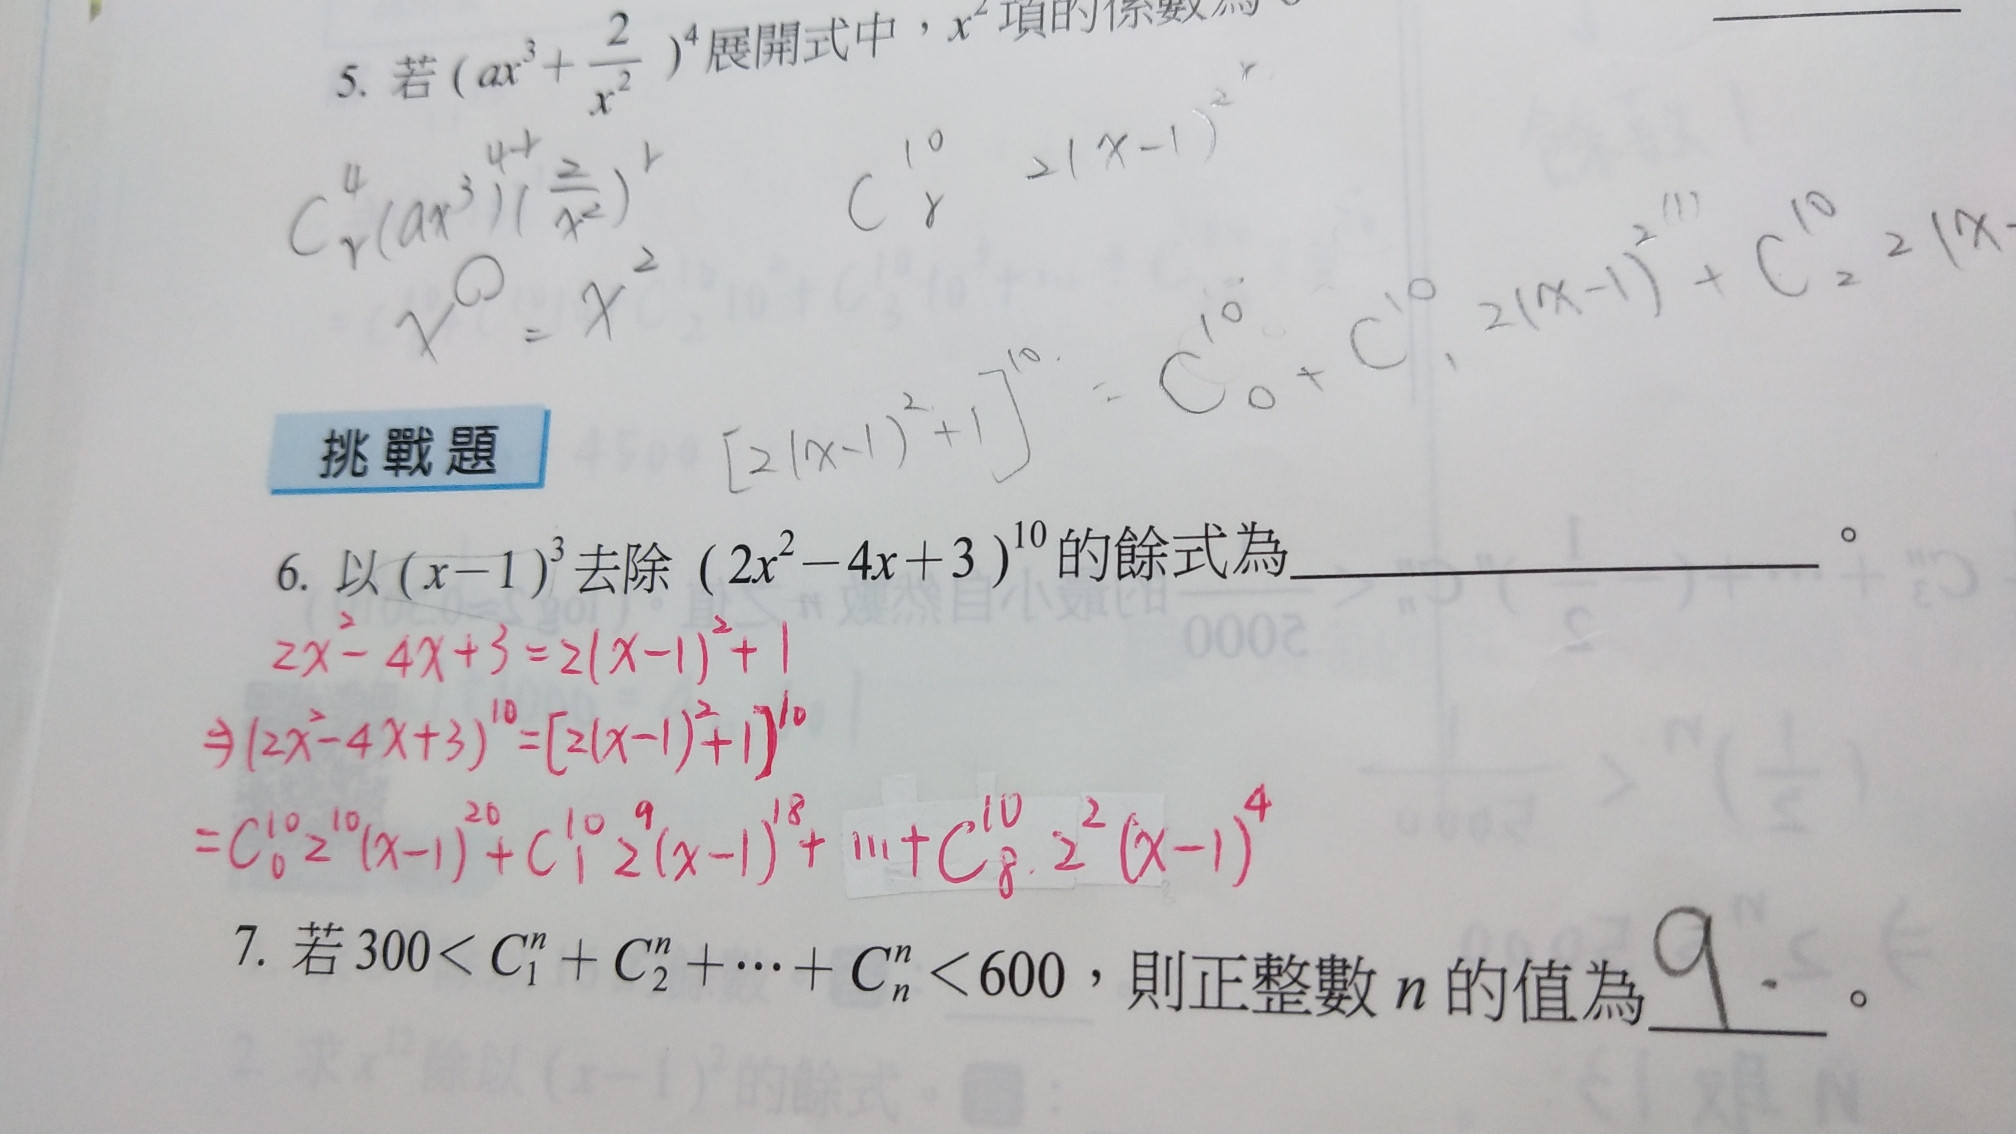 5. 若 ( ax³ + 2/x² )⁴ 展開式中，x² 項的係數為
C⁴ᵣ (ax³)⁴⁻ʳ ( 2/x² )ʳ
C¹⁰ᵣ 2(x-1)² ʳ
x = x²
[2(x-1)²+1]¹⁰ = C¹⁰₀ + C¹⁰₁ 2(x-1)²⁽¹⁾ + C¹⁰₂ 2(x-
挑戰題
6. 以 ( x－1 )³ 去除 ( 2x²－4x＋3 )¹⁰ 的餘式為 。
2x²-4x+3=2(x-1)²+1
⇒(2x²-4x+3)¹⁰=[2(x-1)²+1]¹⁰
=C¹⁰₀ 2¹⁰(x-1)²⁰+C¹⁰₁ 2⁹(x-1)¹⁸+ … +C¹⁰₈ · 2² (x-1)⁴
7. 若 300＜Cⁿ₁＋Cⁿ₂＋⋯＋Cⁿₙ＜600，則正整數 n 的值為 9. 。